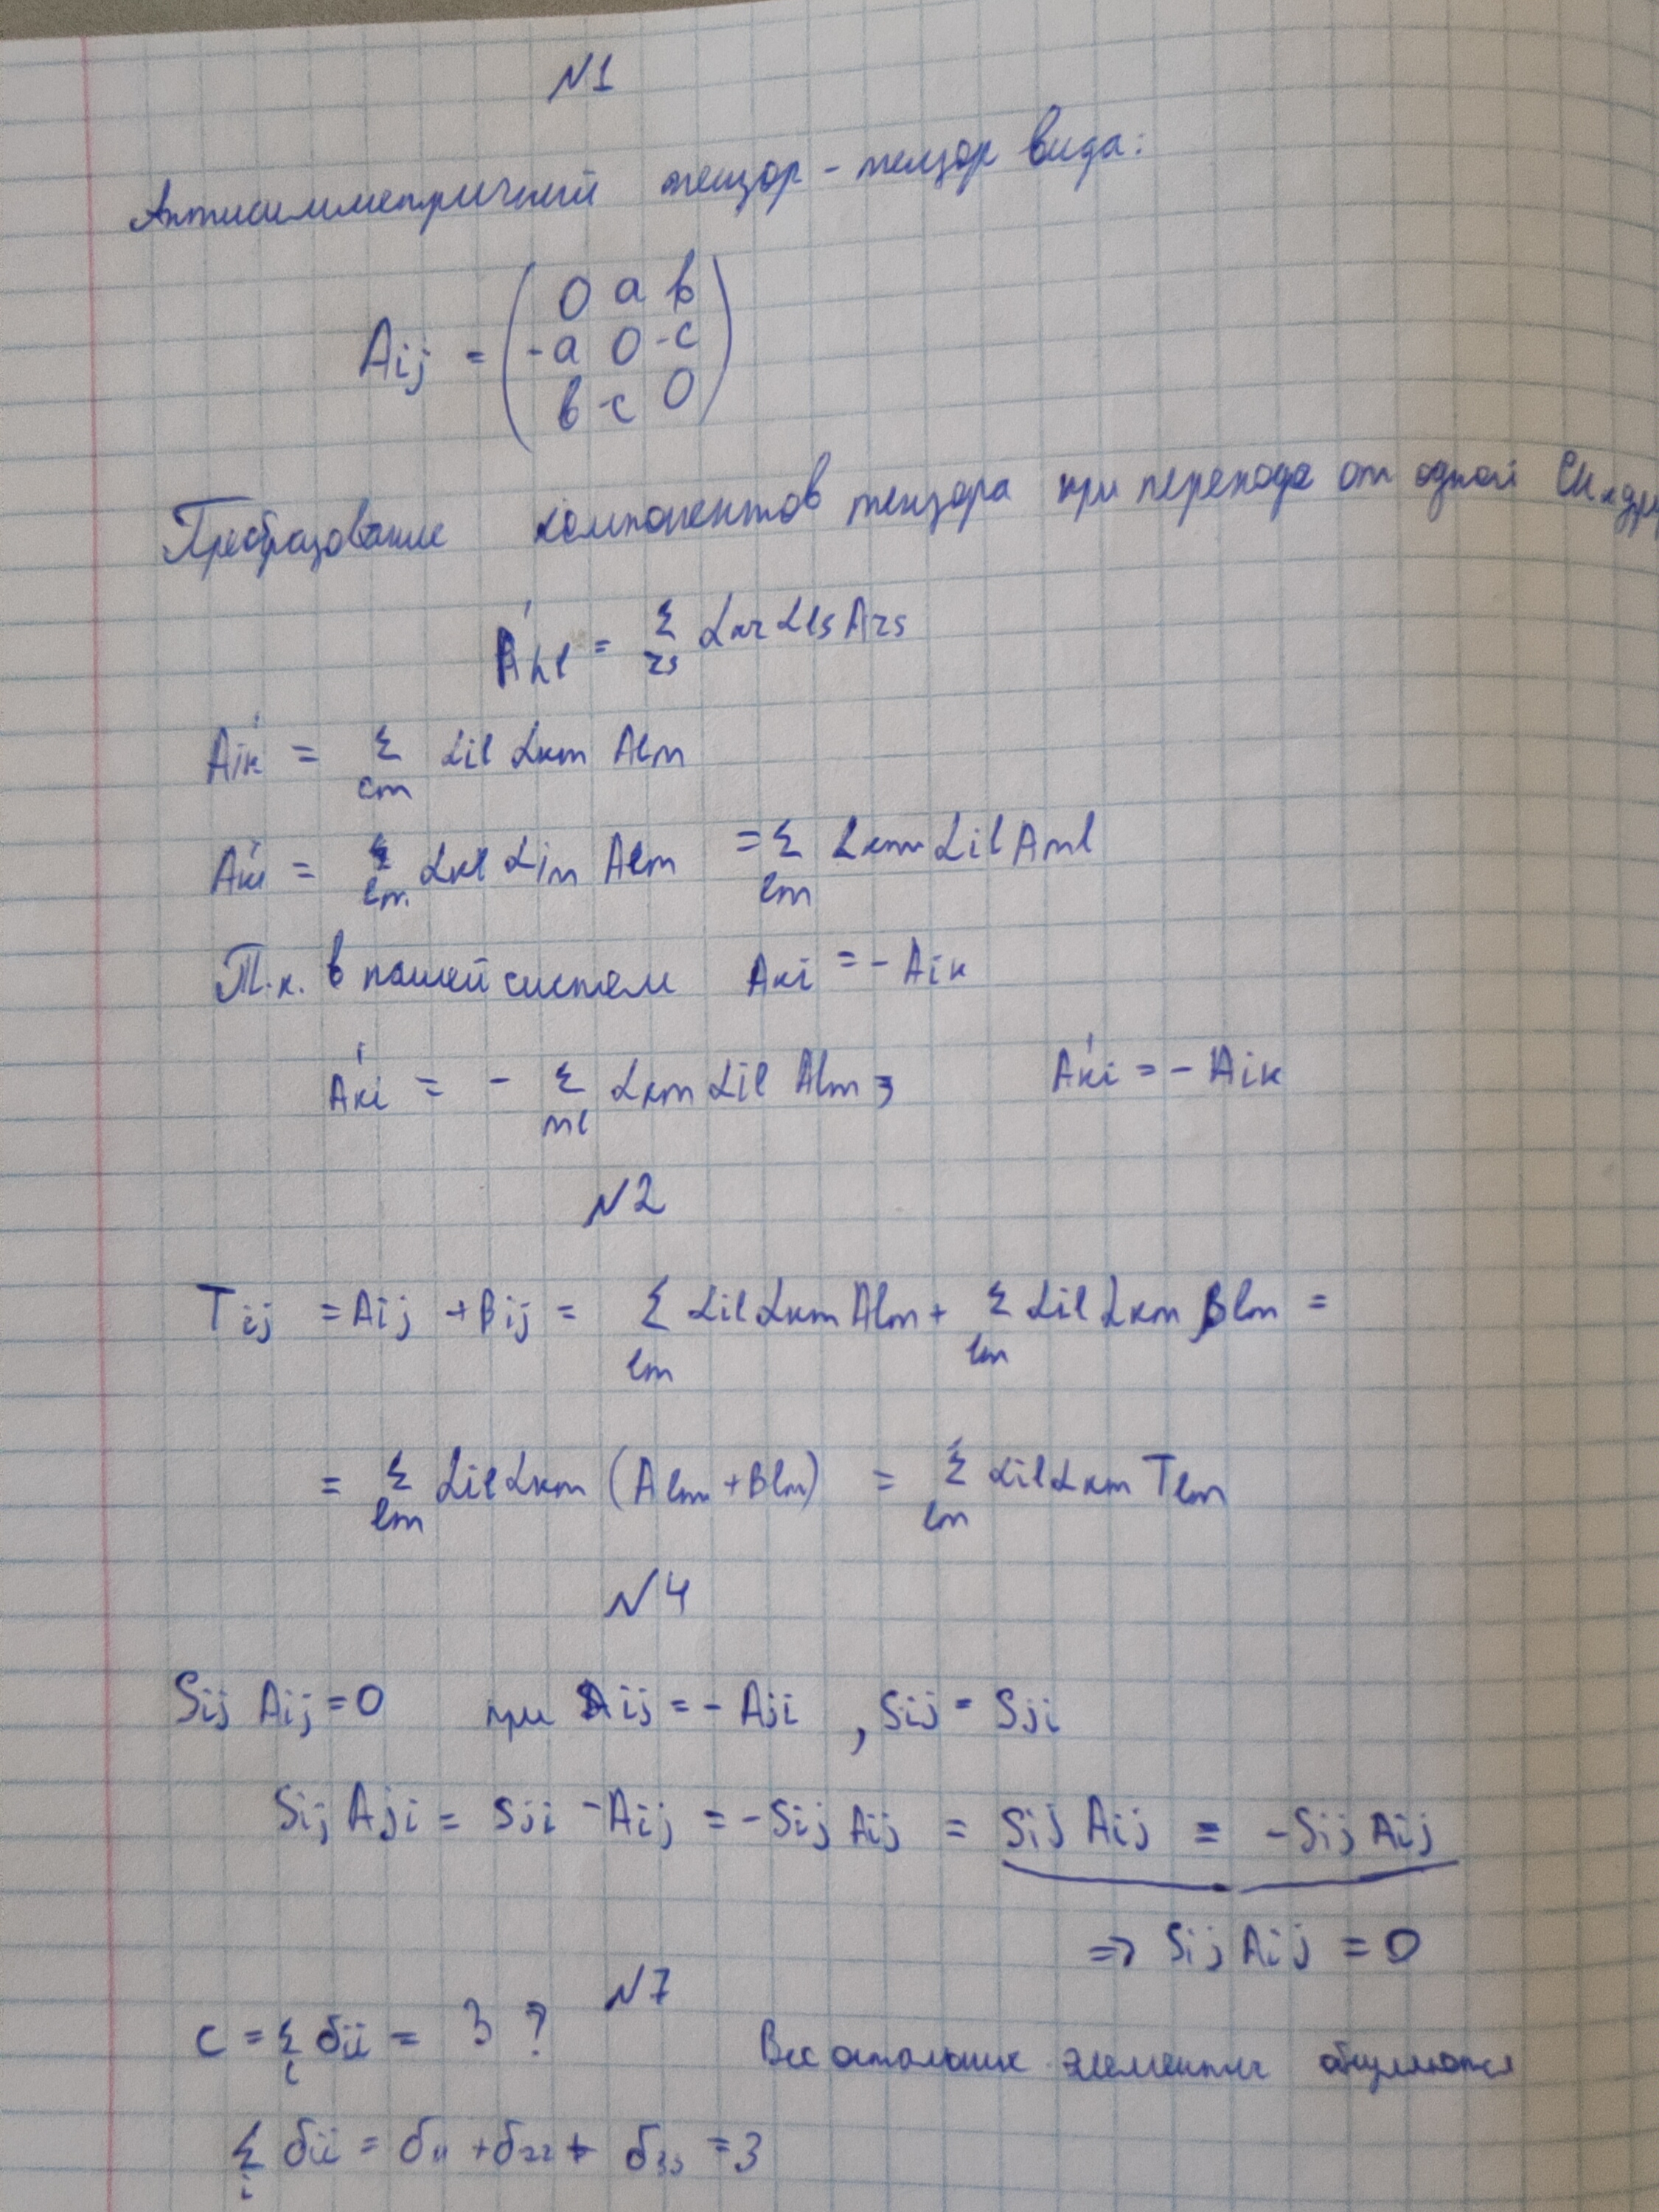 N1
Антисимметричный тензор - тензор вида:
Aij = ( 0 a b
-a 0 -c
b -c 0 )
Преобразование компонентов тензора при перехода от одной СК к др
A'kl = Σ rs αkr αls Ars
A'ik = Σ lm αil αkm Alm
A'ki = Σ lm αkl αim Alm = Σ lm αkm αil Aml
Т.к. в нашей систем Aki = - Aik
A'ki = - Σ ml αkm αil Alm ⇒ A'ki = - Aik
N2
Tij = Aij + Bij = Σ lm αil αkm Alm + Σ lm αil αkm Blm =
= Σ lm αil αkm (Alm + Blm) = Σ lm αil αkm Tlm
N4
Sij Aij = 0 при Aij = - Aji , Sij = Sji
Sij Aji = Sji - Aij = - Sij Aij = Sij Aij = - Sij Aij
=> Sij Aij = 0
N7
C = Σ i δii = 3 ? Все остальные элементы обнуляются
Σ i δii = δ11 + δ22 + δ33 = 3